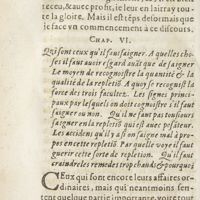 receu, & avec profit, ie leur en lairray tou-
te la gloire. Mais il est téps desormais que
je face un commencement a ce discours.
CHAP. VI.
Qui sont ceux qu'il faut saigner. A quelles cho-
ses il faut avoir esgard avāt que de saigner
Le moyen de recognoistre la quantité & la
qualité de la repletiō. A quoy se recognoist la
force des trois facultez. Les signes princi-
paux par lesquels on doit cognoistre s'il faut
saigner ou non. Qu'il ne faut pas tousiours
saigner en la repletion qui est avec pesāteur.
Les accidens qu'il y a si on saigne mal à pro-
pos en cette repletiō. Par quelle voye il faut
guerir cette sorte de repletion. Qu'il faut
craindre les remedes trop chauds, & pourquoy
CEux qui sont encore leurs affaires or-
dinaires, mais qui neantmoins sen-
tent quelque partie importante, voire tout